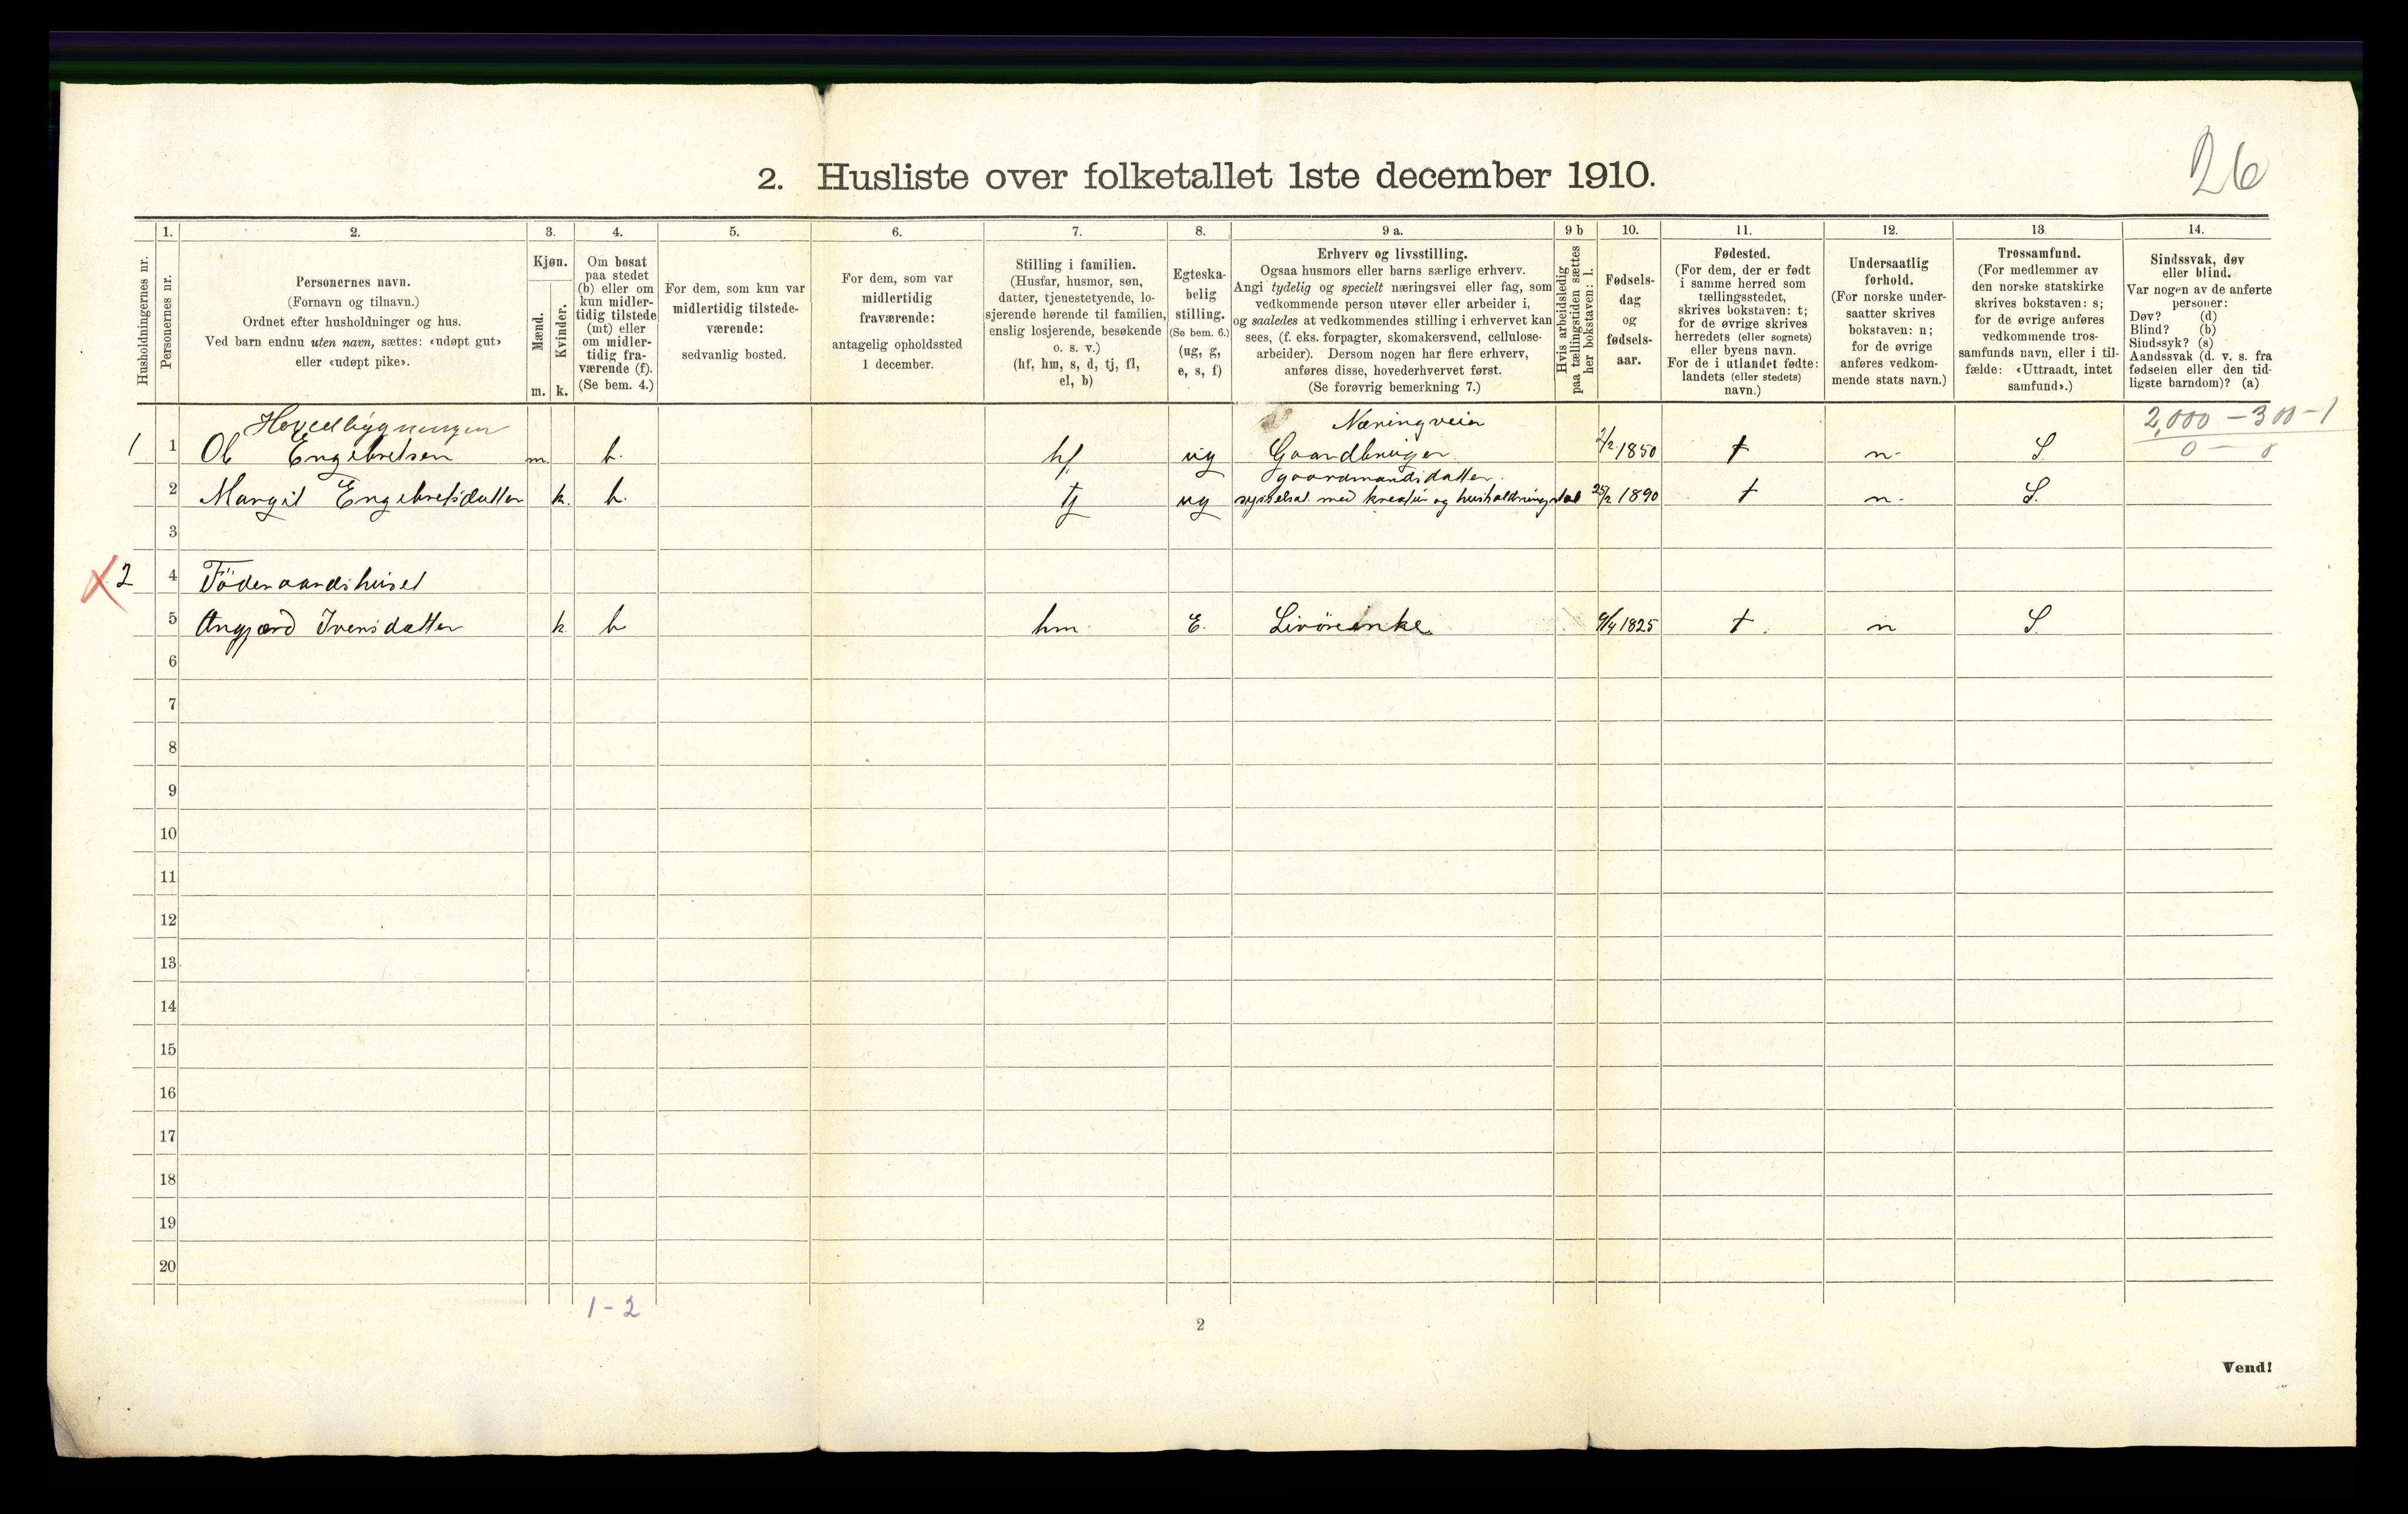 26
2. Husliste over folketallet 1ste december 1910.
Husholdningernes nr.
1.
Personernes nr.
2.
Personernes navn.
(Fornavn og tilnavn.)
Ordnet efter husholdninger og hus.
Ved barn endnu uten navn, sættes: «udøpt gut»
eller «udøpt pike».
3.
Kjøn.
Mænd.
Kvinder.
m. k.
4.
Om bosat
paa stedet
(b) eller om
kun midler-
tidig tilstede
(mt) eller
om midler-
tidig fra-
værende (f).
(Se bem. 4.)
5.
For dem, som kun var
midlertidig tilstede-
værende:
sedvanlig bosted.
6.
For dem, som var
midlertidig
fraværende:
antagelig opholdssted
1 december.
7.
Stilling i familien.
(Husfar, husmor, søn,
datter, tjenestetyende, lo-
sjerende hørende til familien,
enslig losjerende, besøkende
o. s. v.)
(hf, hm, s, d, tj, fl,
el, b)
8.
Egteska-
belig
stilling.
(Se bem. 6.)
(ug, g,
e, s, f)
9 a.
Erhverv og livsstilling.
Ogsaa husmors eller barns særlige erhverv.
Angi tydelig og specielt næringsvei eller fag, som
vedkommende person utøver eller arbeider i,
og saaledes at vedkommendes stilling i erhvervet kan
sees, (f. eks. forpagter, skomakersvend, cellulose-
arbeider). Dersom nogen har flere erhverv,
anføres disse, hovederhvervet først.
(Se forøvrig bemerkning 7.)
9 b
Hvis arbeidsledig
paa tællingstiden sættes
her bokstaven: l.
10.
Fødsels-
dag
og
fødsels-
aar.
11.
Fødested.
(For dem, der er født
i samme herred som
tællingsstedet,
skrives bokstaven: t;
for de øvrige skrives
herredets (eller sognets)
eller byens navn.
For de i utlandet fødte:
landets (eller stedets)
navn.)
12.
Undersaatlig
forhold.
(For norske under-
saatter skrives
bokstaven: n;
for de øvrige
anføres vedkom-
mende stats navn.)
13.
Trossamfund.
(For medlemmer av
den norske statskirke
skrives bokstaven: s;
for de øvrige anføres
vedkommende tros-
samfunds navn, eller i til-
fælde: «Uttraadt, intet
samfund».)
14.
Sindssvak, døv
eller blind.
Var nogen av de anførte
personer:
Døv? (d)
Blind? (b)
Sindssyk? (s)
Aandssvak (d. v. s. fra
fødselen eller den tid-
ligste barndom)? (a)
Hovedbygningen Næringveier 2,000 - 300 - 1
1 1 Ole Engebretsen m. b. hf ug Gaardbruger 1850 t n. S 0 - 0
gaardmandsdatter.
2 Margit Engebretsdatter k. b. tj ug sysselsat med kreatur og husholdningstel 25/2 1890 t n. S.
3
X 2 4 Föderaadshuset
5 Angjærd Iversdatter k. b hm E. Livöreinke 6/4 1825 t. n S.
6
7
8
9
10
11
12
13
14
15
16
17
18
19
20
1 - 2
2
Vend!